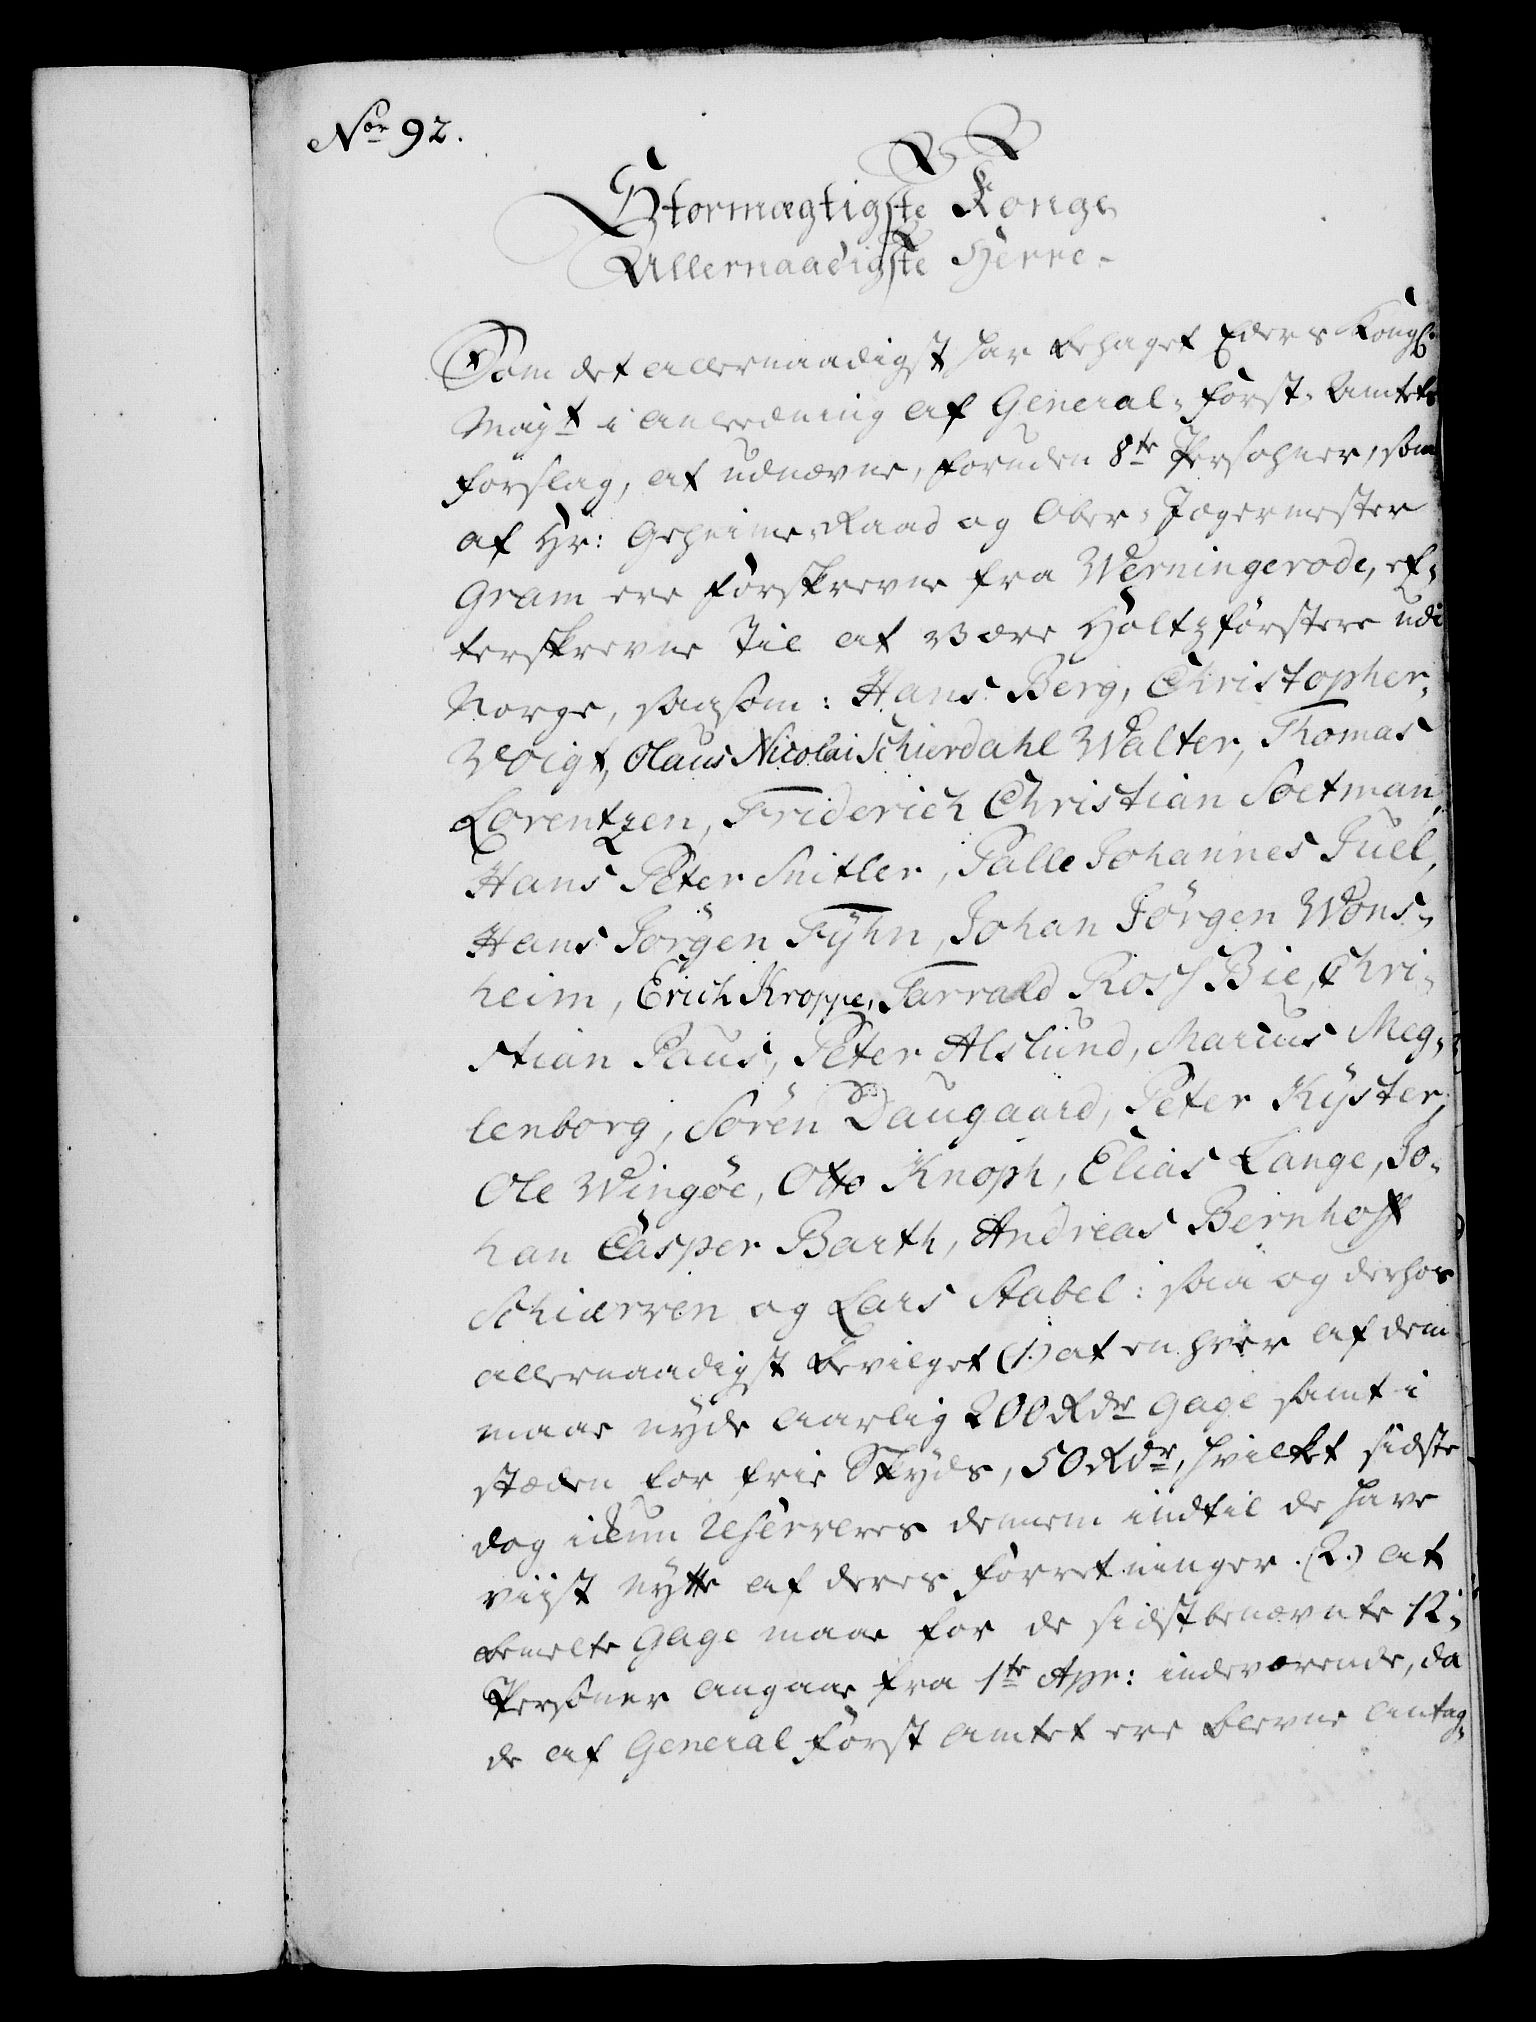 Nor 92.
Stormægtigste Konge
Allernaadigste Herre
Som det allernaadigst har behaget Eders Kongl.
Mayt i anledning af General-Forst-Amtets
forslag, at udnævne, foruden 8te Persohner, som
af Hr: Geheime-Raad og Ober-Jægermester
Gram ere forskrevne fra Werningerode, ef-
terskrevne til at være Holtzförstere udi
Norge, saasom: Hans Berg, Christopher
Voigt, Olaus Nicolai Schierdahl Walter, Thomas
Lorentzen, Friderich Christian Soetman,
Hans Peter Snitler, Palle Johannes Juel,
Hans Jörgen Fÿhn, Johan Jörgen Wons-
heim, Erich Kroppe, Tarrald Ross Bie, Chri-
stian Paus, Peter Alslund, Marcus Meg-
lenborg, Sören Daugaard, Peter Kÿster,
Ole Wingöe, Otto Knoph, Elias Lange, Jo-
han Casper Barth, Andreas Bernhoft
Schiærven og Lars Stabel: saa og derhos
allernaadigst bevilget (1.) at en hver af dem
maae nyde aarlig 200 Rdr Gage samt i
stæden for frie Skyds, 50 Rdr, hvilket sidste
dog ikun reserveres dennem indtil de have
viist nytte af deres forretninger. (2.) at
bemelte Gage maae for de sidstbenævnte 12-
Persöner angaae fra 1te Apr: indeværende, da
de af General Forst Amtet ere blevne antag-